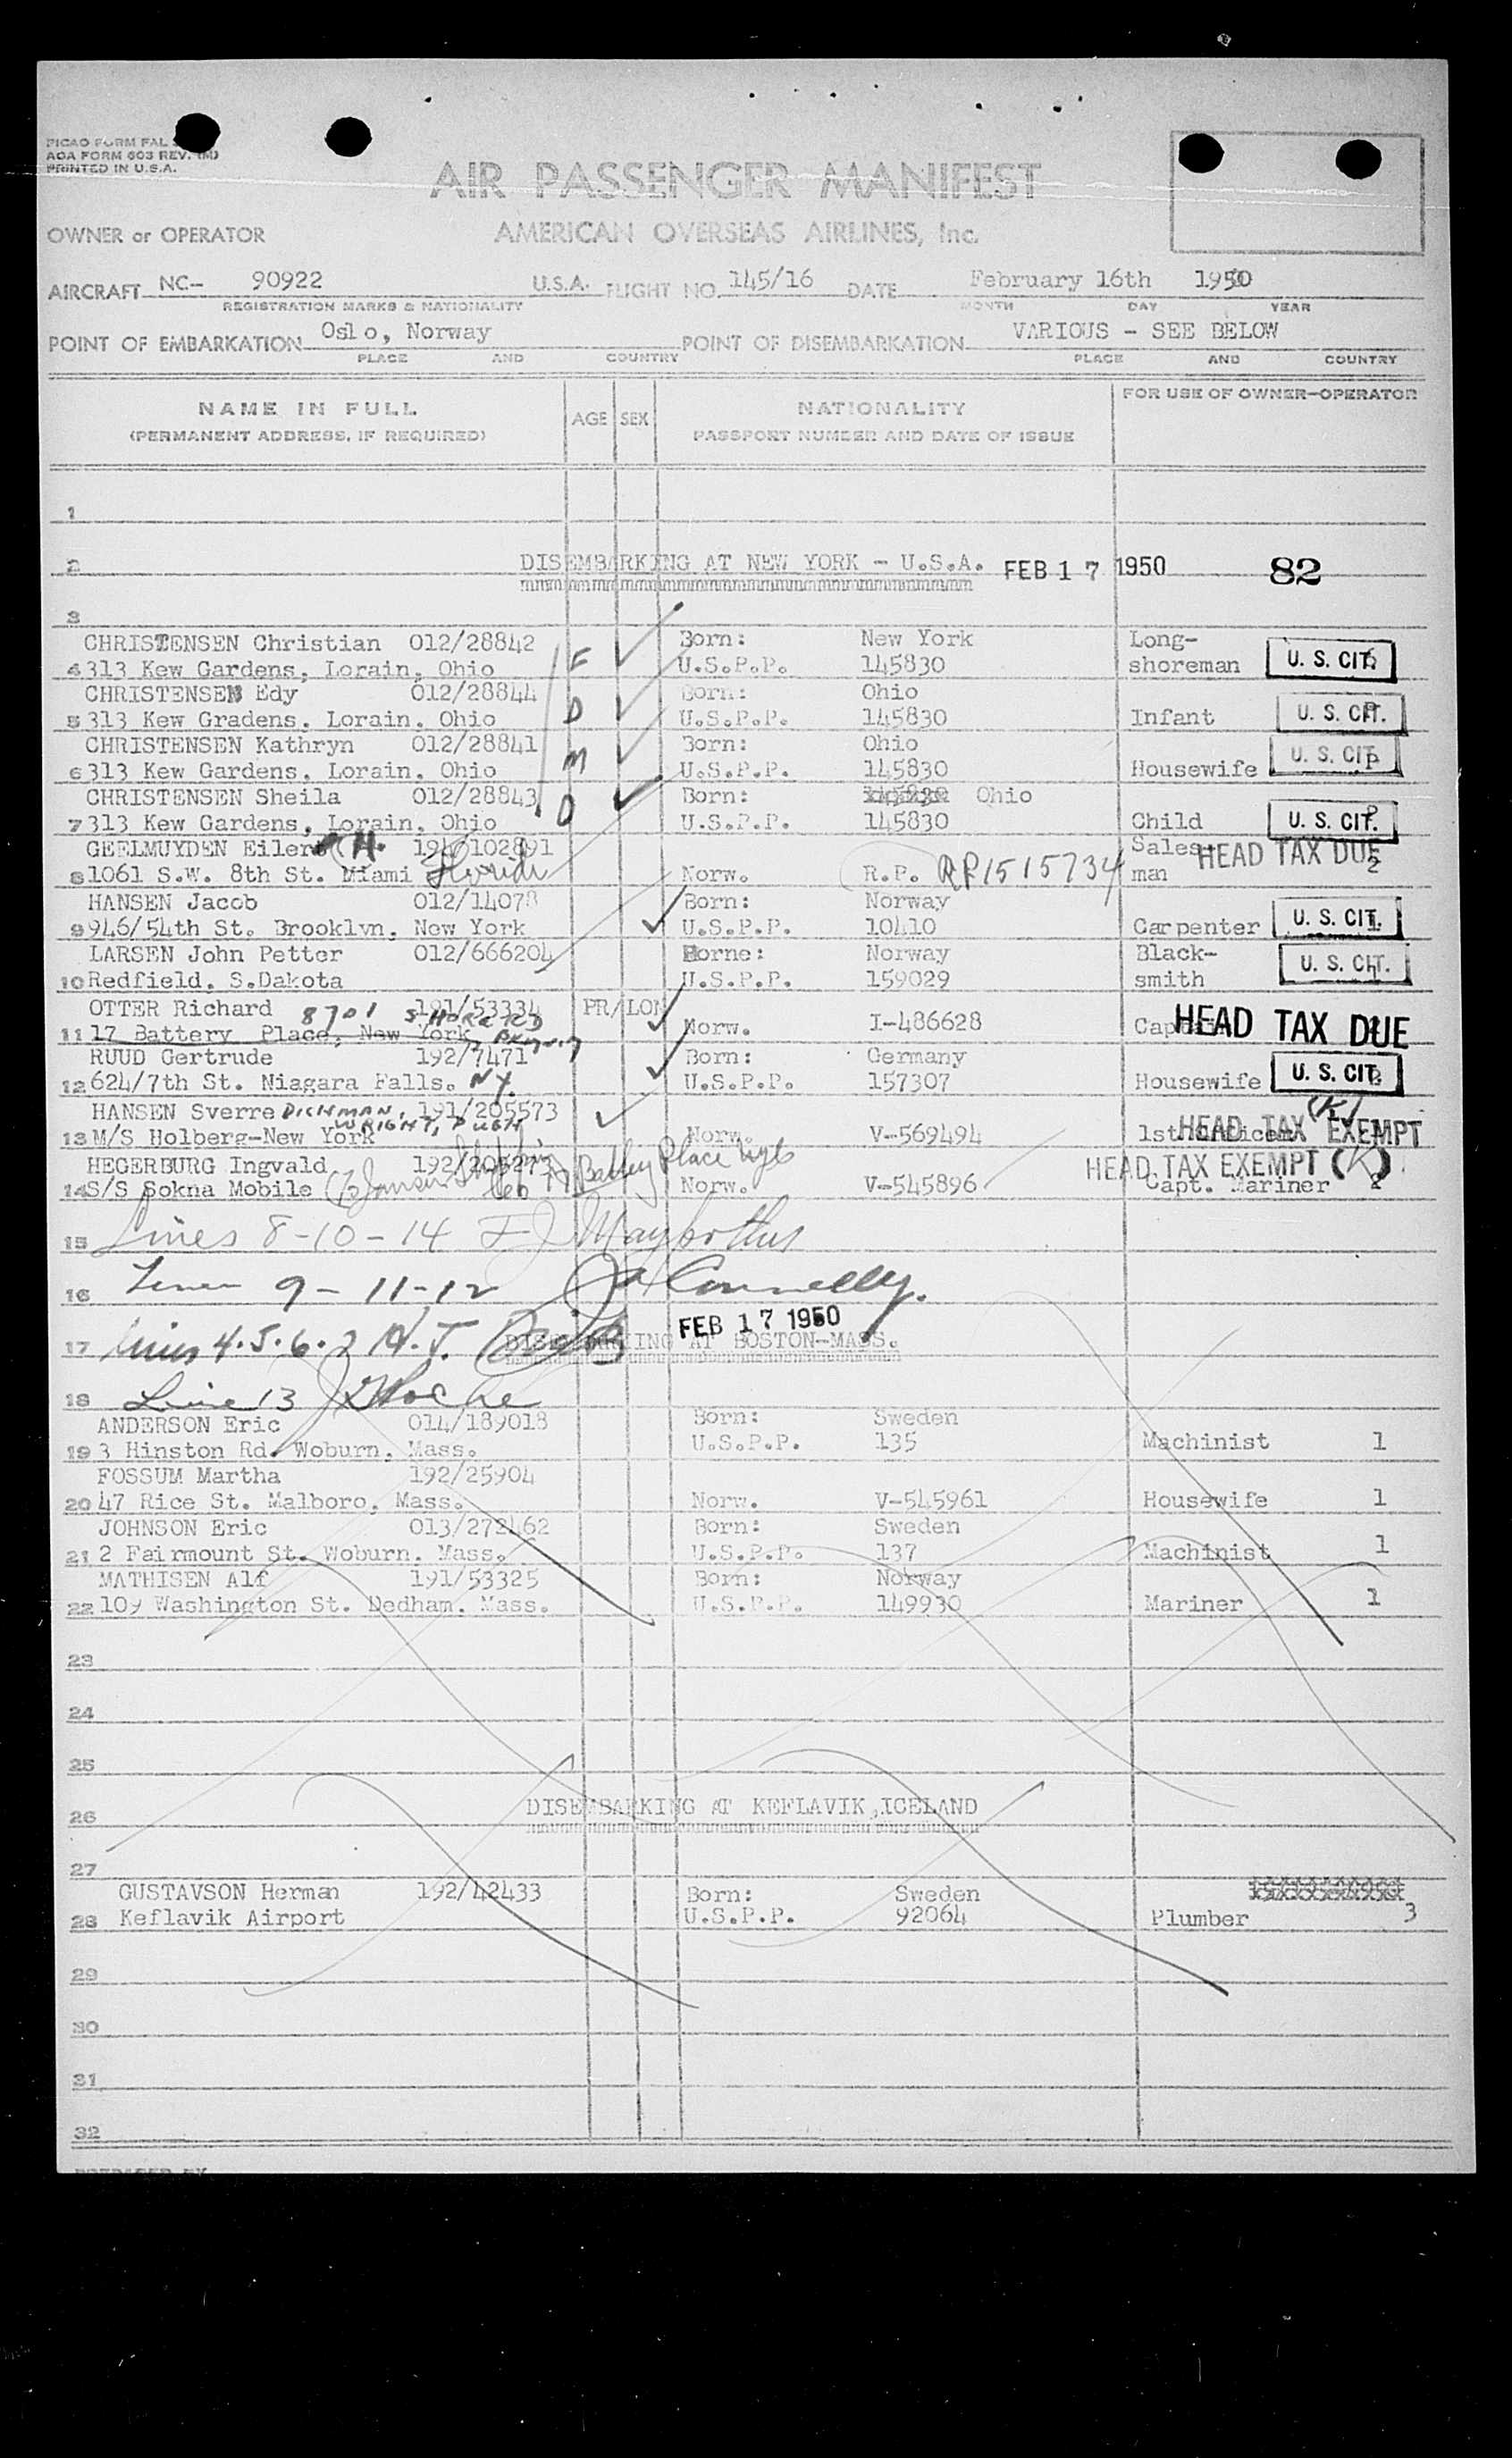 PICAO FORM FAL
AOA FORM 603 REV. (M)
PRINTED IN U.S.A.
AIR PASSENGER MANIFEST
OWNER or OPERATOR AMERICAN OVERSEAS AIRLINES, Inc.
AIRCRAFT NC- 90922 U.S.A. FLIGHT NO. 145/16 DATE February 16th 1950
REGISTRATION MARKS & NATIONALITY MONTH DAY YEAR
POINT OF EMBARKATION Oslo, Norway POINT OF DISEMBARKATION VARIOUS - SEE BELOW
PLACE AND COUNTRY PLACE AND COUNTRY
NAME IN FULL AGE SEX NATIONALITY FOR USE OF OWNER-OPERATOR
(PERMANENT ADDRESS, IF REQUIRED) PASSPORT NUMBER AND DATE OF ISSUE
1
2 DISEMBARKING AT NEW YORK - U.S.A. FEB 17 1950 82
3
CHRISTENSEN Christian 012/28842 Born: New York Long-
4 313 Kew Gardens, Lorain, Ohio F U.S.P.P. 145830 shoreman U. S. CIT.
CHRISTENSEN Edy 012/28844 Born: Ohio
5 313 Kew Gradens, Lorain, Ohio D U.S.P.P. 145830 Infant U. S. CIT.
CHRISTENSEN Kathryn 012/28841 Born: Ohio
6 313 Kew Gardens, Lorain, Ohio M U.S.P.P. 145830 Housewife U. S. CIT.
CHRISTENSEN Sheila 012/28843 Born: Ohio
7 313 Kew Gardens, Lorain, Ohio D U.S.P.P. 145830 Child U. S. CIT.
GEELMUYDEN Eilert H. Sales- HEAD TAX DUE
8 1061 S.W. 8th St. Miami Florida Norw. R.P. RP1515734 man 2
HANSEN Jacob 012/14078 Born: Norway
9 946/54th St. Brooklyn, New York U.S.P.P. 10410 Carpenter U. S. CIT.
LARSEN John Petter 012/666204 Borne: Norway Black-
10 Redfield, S.Dakota U.S.P.P. 159029 smith U. S. CIT.
OTTER Richard 8701 SHORE RD 191/53334 PR/LON
11 17 Battery Place, New York BKLYN Norw. I-486628 Captain HEAD TAX DUE
RUUD Gertrude 192/7471 Born: Germany
12 624/7th St. Niagara Falls. NY. U.S.P.P. 157307 Housewife U. S. CIT.
HANSEN Sverre DICHMAN, WRIGHT, PUGH 191/205573 (K)
13 M/S Holberg-New York Norw. V-569494 HEAD TAX EXEMPT
HEGERBURG Ingvald Battery Place HEAD TAX EXEMPT (K)
14 S/S Sokna Mobile Norw. V-545896 Capt. Mariner
15 Lines 8-10-14
16 9-11-12 Connelly.
FEB 17 1950
17 Lines 4.5.6.7 DISEMBARKING AT BOSTON-MASS.
18 Line 13 Roche
ANDERSON Eric 014/189018 Born: Sweden
19 3 Hinston Rd. Woburn, Mass. U.S.P.P. 135 Machinist 1
FOSSUM Martha 192/25904
20 47 Rice St. Malboro, Mass. Norw. V-545961 Housewife 1
JOHNSON Eric 013/272462 Born: Sweden
21 2 Fairmount St. Woburn, Mass. U.S.P.P. 137 Machinist 1
MATHISEN Alf 191/53325 Born: Norway
22 109 Washington St. Dedham, Mass. U.S.P.P. 149930 Mariner 1
23
24
25
26 DISEMBARKING AT KEFLAVIK,ICELAND
27
GUSTAVSON Herman 192/42433 Born: Sweden
28 Keflavik Airport U.S.P.P. 92064 Plumber 3
29
30
31
32